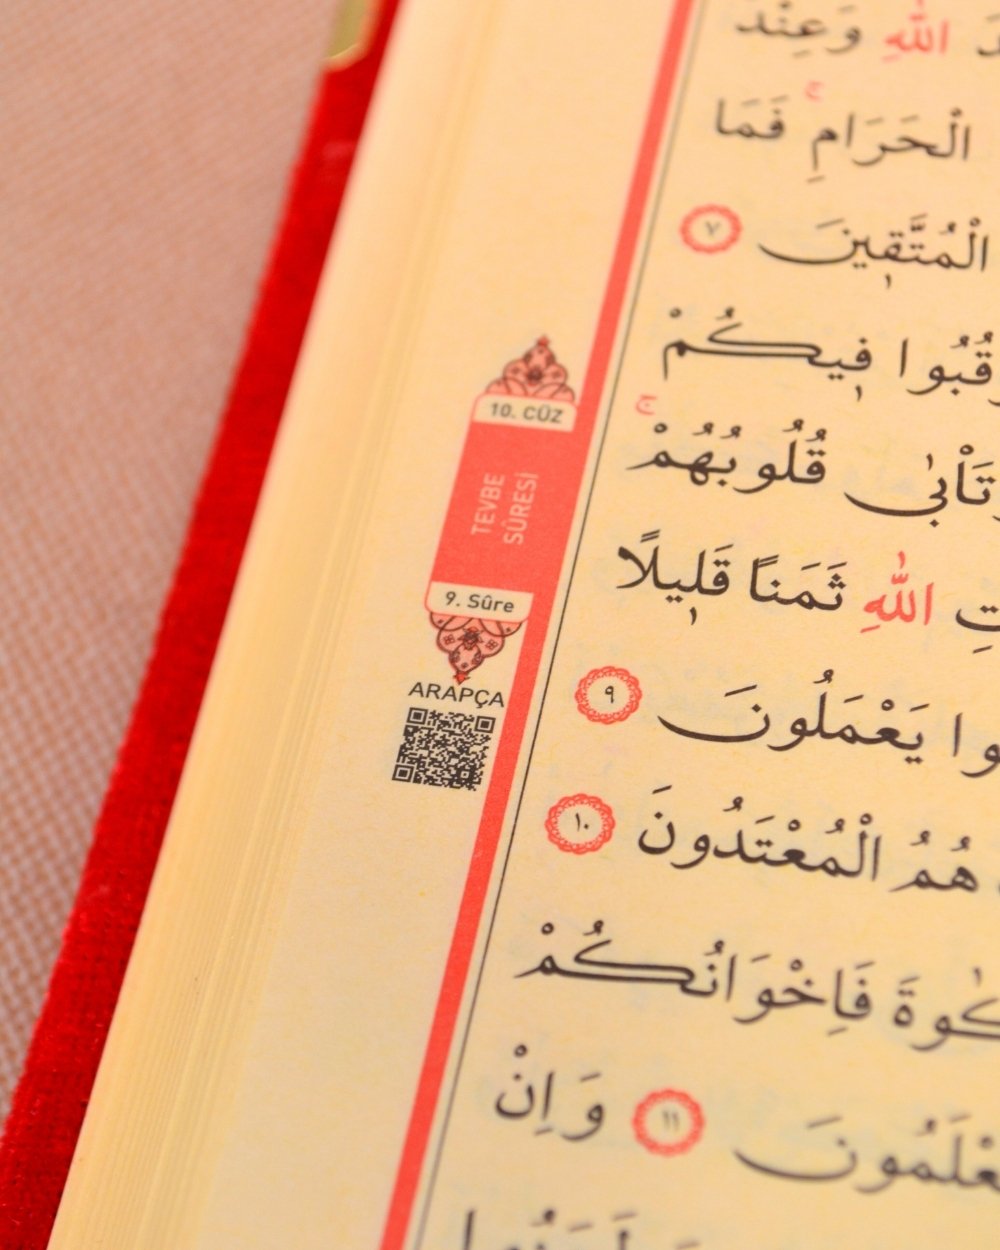 اللّٰهِ وَعِنْدَ
الْحَرَامِۚ فَمَا
الْمُتَّق۪ينَ ٧
ف۪يكُمْ
وَتَأْبٰى قُلُوبُهُمْۚ
اللّٰهِ ثَمَنًا قَل۪يلًا
يَعْمَلُونَ ٩
هُمُ الْمُعْتَدُونَ ١٠
فَاِخْوَانُكُمْ
١١ وَاِنْ
10. CÜZ
TEVBE
SÛRESİ
9. Sûre
ARAPÇA